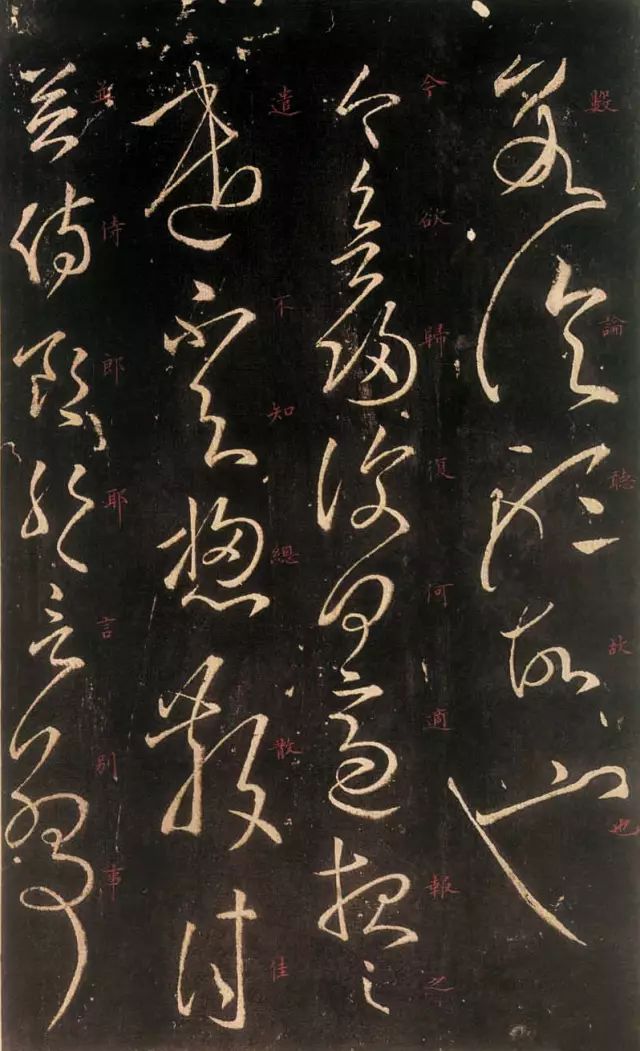 若論聽故也
今欲歸復何適報之
遣不知總散佳
並侍郎耶言別事